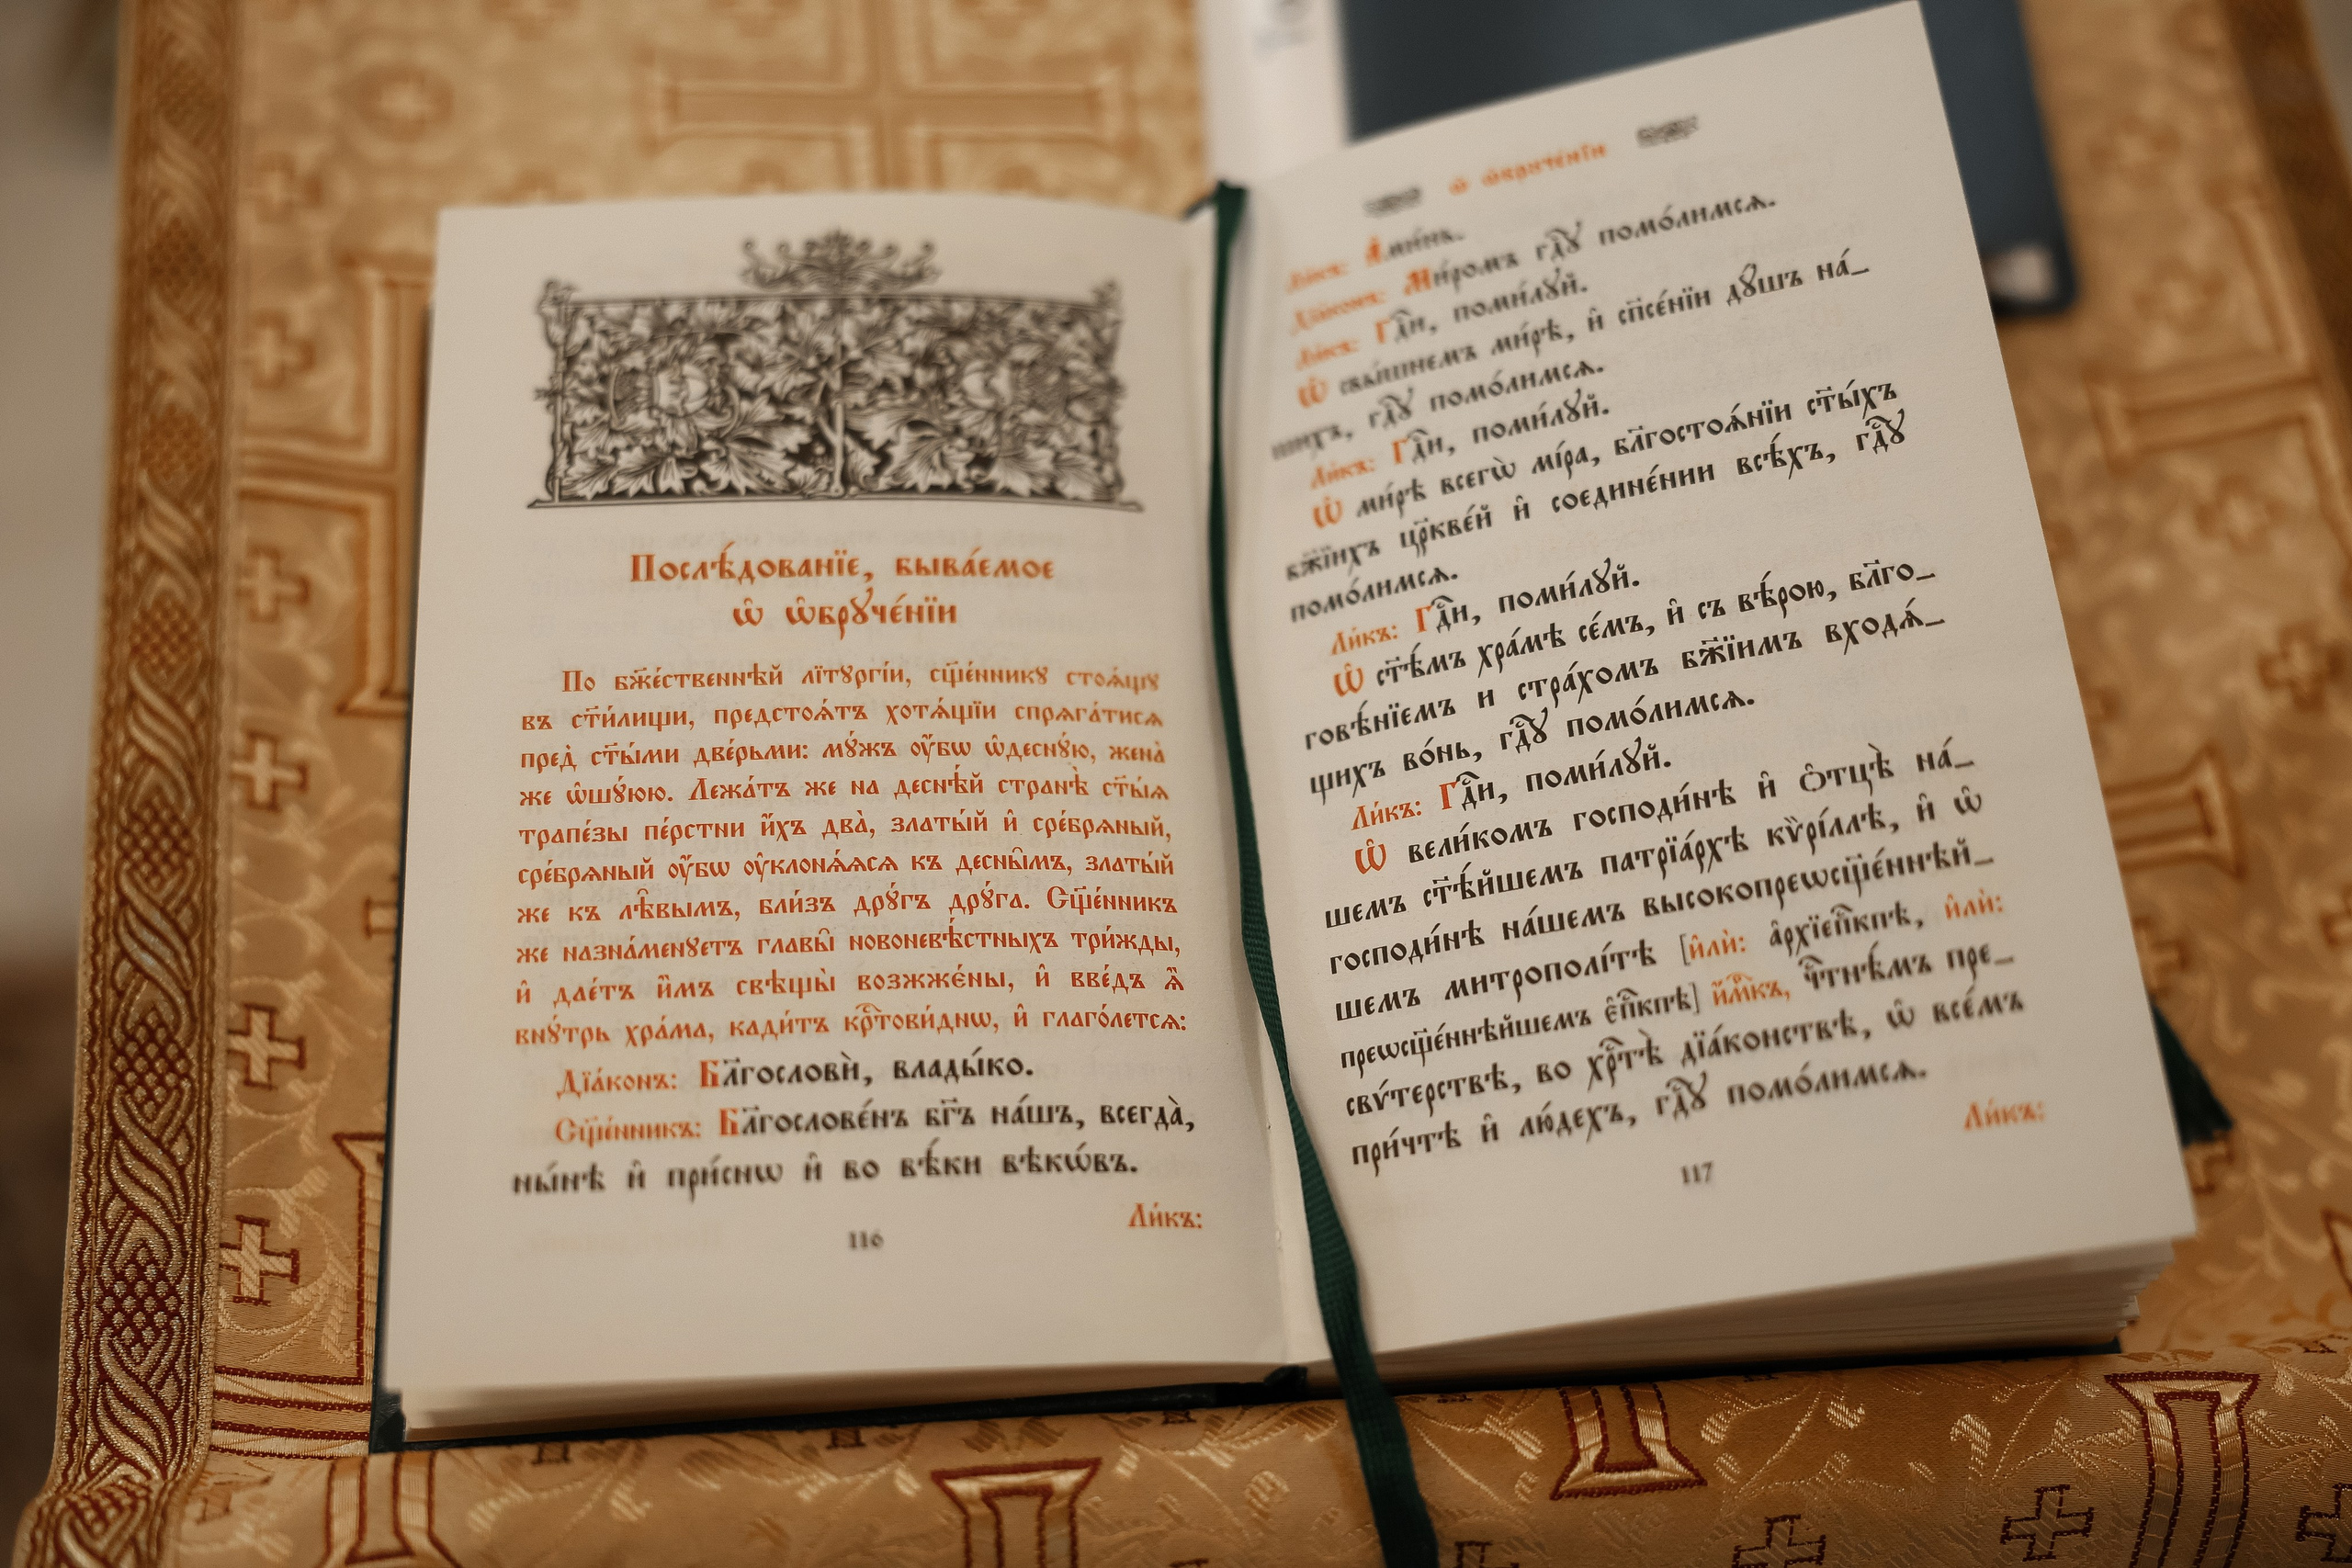 Послѣ́дованїе, быва́емое
ѡ҆ ѡ҆брꙋче́нїи
По бж҃е́ственнѣй лїтꙋргі́и, сщ҃е́нникꙋ стоѧ́щꙋ
въ ст҃и́лищи, предстоѧ́тъ хотѧ́щїи спрѧга́тисѧ
пред̾ ст҃ы́ми две́рьми: мꙋ́жъ ᲂу҆́бѡ ѡ҆деснꙋ́ю, жена̀
же ѡ҆шꙋ́юю. Лежа́тъ же на деснѣ́й странѣ̀ ст҃ы́ѧ
трапе́зы пе́рстни и҆́хъ два̀, златы́й и҆ сре́брѧный,
сре́брѧный ᲂу҆́бѡ ᲂу҆клонѧ́ѧсѧ къ десны̑мъ, златы́й
же къ лѣ̑вымъ, бли́зъ дрꙋ́гъ дрꙋ́га. Сщ҃е́нникъ
же назна́менꙋетъ главы̑ новоневѣ́стныхъ три́жды,
и҆ дае́тъ и҆̀мъ свѣщы̀ возжжє́ны, и҆ вве́дъ ѧ҆̀
внꙋ́трь хра́ма, кади́тъ крⷭ҇тови́днѡ, и҆ глаго́летсѧ:
Дїа́конъ: Бл҃гословѝ, влады́ко.
Сщ҃е́нникъ: Бл҃гослове́нъ бг҃ъ на́шъ, всегда̀,
ны́нѣ и҆ при́снѡ и҆ во вѣ́ки вѣкѡ́въ.
Ли́къ:
116
ѡ҆ ѡ҆брꙋче́нїи
Ли́къ: А҆ми́нь.
Дїа́конъ: Ми́ромъ гдⷭ҇ꙋ помо́лимсѧ.
Ли́къ: Гдⷭ҇и, поми́лꙋй.
Ѡ҆ свы́шнемъ ми́рѣ, и҆ сп҃се́нїи дꙋ́шъ на́_
шихъ, гдⷭ҇ꙋ помо́лимсѧ.
Ли́къ: Гдⷭ҇и, поми́лꙋй.
Ѡ҆ ми́рѣ всегѡ̀ мі́ра, бл҃гостоѧ́нїи ст҃ы́хъ
бж҃їихъ цр҃кве́й и҆ соедине́нии всѣ́хъ, гдⷭ҇ꙋ
помо́лимсѧ.
Ли́къ: Гдⷭ҇и, поми́лꙋй.
Ѡ҆ ст҃ѣ́мъ хра́мѣ се́мъ, и҆ съ вѣ́рою, бл҃го_
говѣ́нїемъ и стра́хомъ бж҃їимъ входѧ́_
щихъ во́нь, гдⷭ҇ꙋ помо́лимсѧ.
Ли́къ: Гдⷭ҇и, поми́лꙋй.
Ѡ҆ вели́комъ господи́нѣ и҆ ѻ҆тцѣ̀ на́_
шемъ ст҃ѣ́йшемъ патрїа́рхѣ кѷрі́ллѣ, и҆ ѡ҆
господи́нѣ на́шемъ высокопреѡсщ҃е́ннѣй_
шемъ митрополі́тѣ [и҆лѝ: а҆рхїепⷭ҇кпѣ, и҆лѝ:
преѡсщ҃е́ннѣйшемъ є҆пⷭ҇кпѣ] и҆́мⷬ҇къ, чⷭ҇тнѣ́мъ пре_
свѵ́терствѣ, во хрⷭ҇тѣ̀ дїа́конствѣ, ѡ҆ все́мъ
при́чтѣ и҆ лю́дехъ, гдⷭ҇ꙋ помо́лимсѧ.
Ли́къ:
117